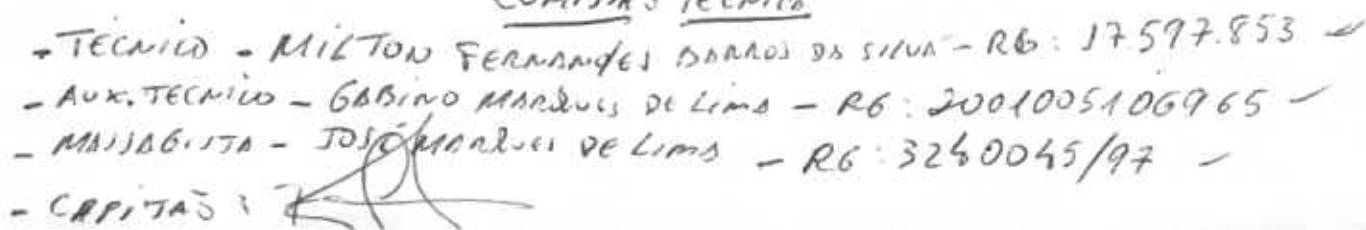 COMISSÃO TÉCNICA
- TÉCNICO - MILTON FERNANDES BARROS DA SILVA - RG: 17.597.853
- AUX. TECNICO - GABINO MARQUES DE LIMA - RG: 2001005106965
- MASSAGISTA - JOSÉ MARQUES DE LIMA - RG: 3240045/97
- CAPITÃO: